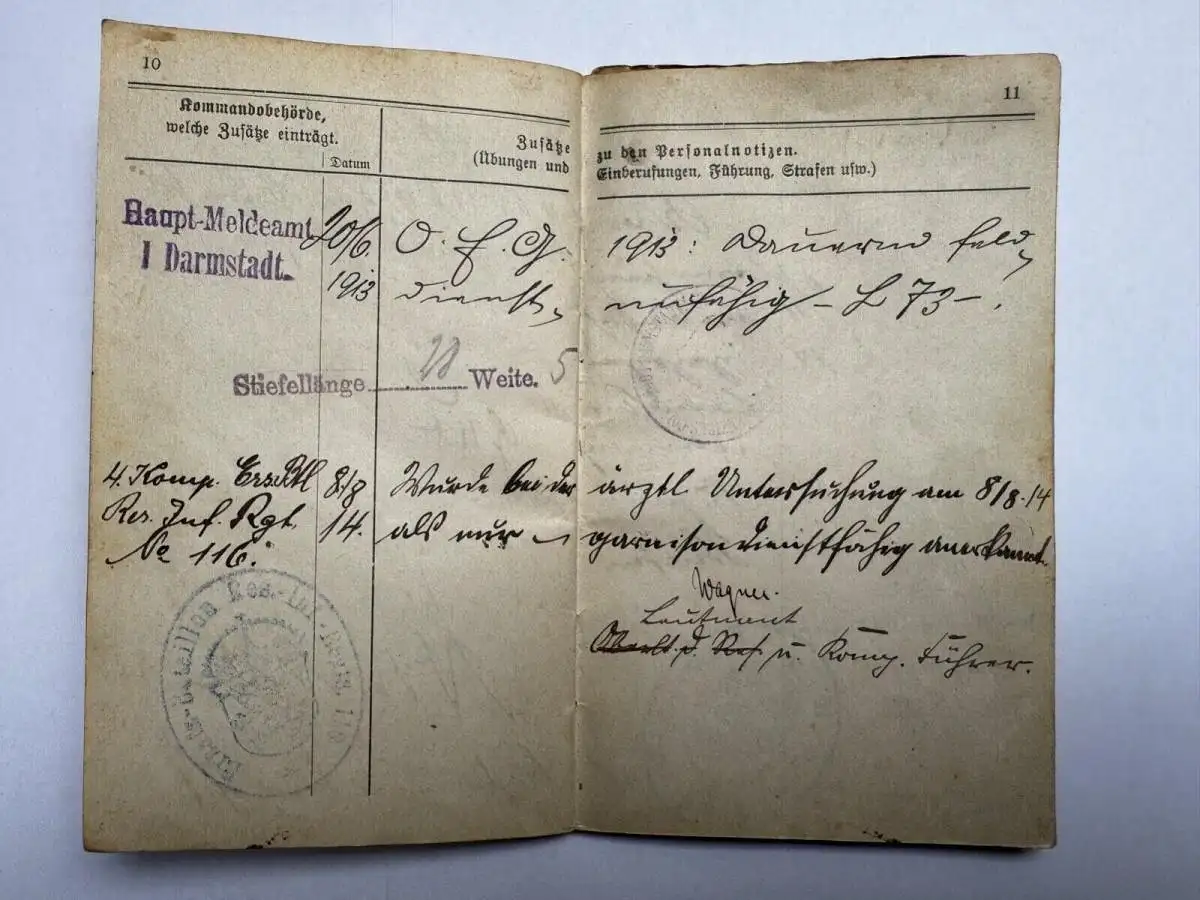 10
Kommandobehörde,
welche Zusätze einträgt.
Datum
Zusätze
(Übungen und
11
zu den Personalnotizen.
Einberufungen, Führung, Strafen usw.)
Haupt-Meldeamt
I Darmstadt.
20/6.
1913
O. E. G. 1913: Dauernd feld
dienstunfähig – L 73 – .
Stiefellänge 28 Weite. 5
4. Komp. Ers. Btl
Res. Inf. Rgt.
No 116.
8/8
14.
Wurde bei der ärztl Untersuchung am 8/8.14
als nur garnisondienstfähig anerkannt.
Wagner.
Leutnant
Oberlt. d. Res. u. Komp. Führer.
Ersatz-Bataillon Res.-Inf.-Regts. 116